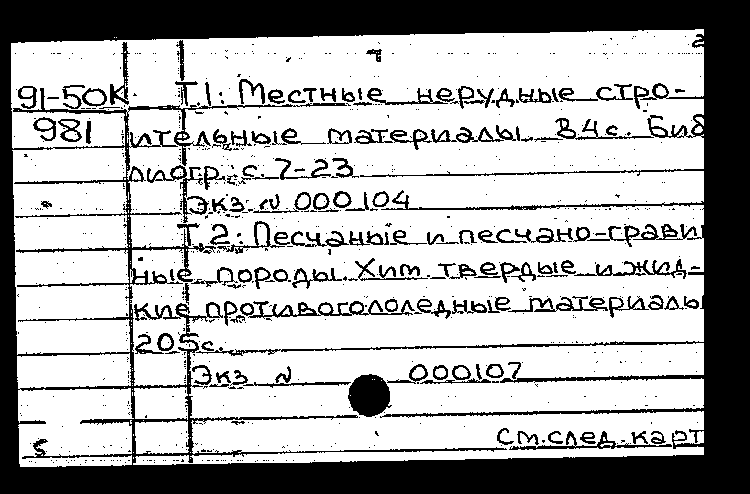 2
91-50К Т.1: Местные нерудные стро-
981 ительные материалы. 84с. Биб
лиогр.: с. 7-23
Экз. № 000104
Т.2: Песчаные и песчано-грави
ные породы. Хим. твердые и жид-
кие противогололедные материалы
205с.
Экз. № 000107
См. след. карт